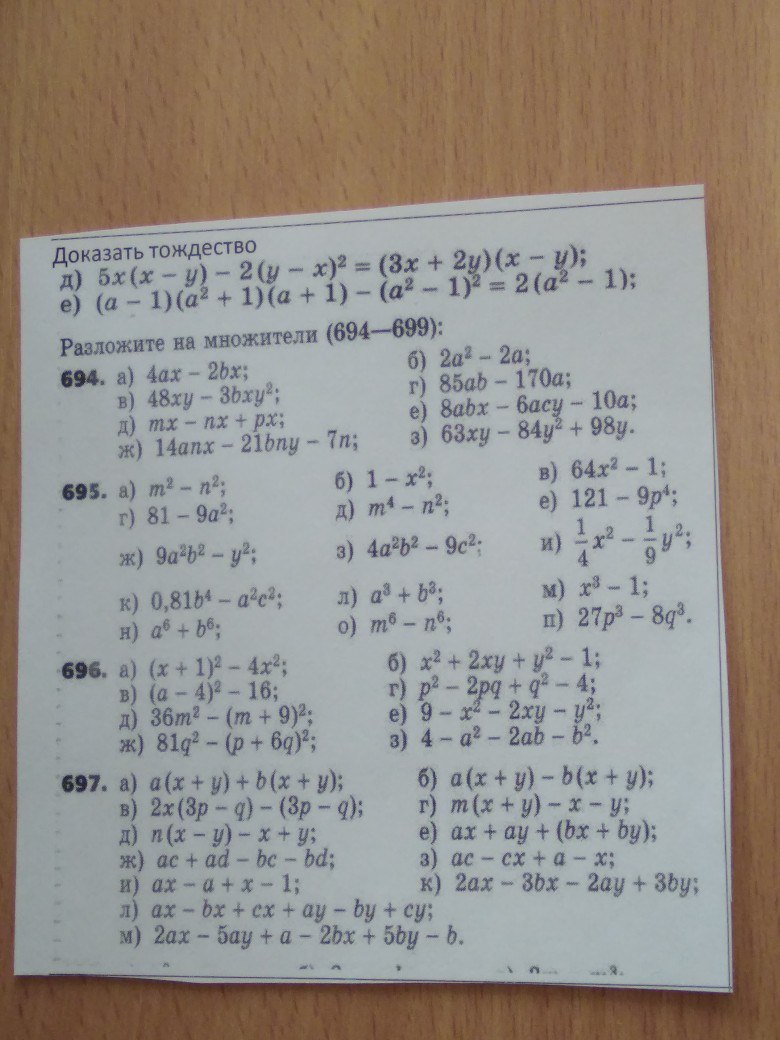 Доказать тождество
д) 5x(x − y) − 2(y − x)² = (3x + 2y)(x − y);
е) (a − 1)(a² + 1)(a + 1) − (a² − 1)² = 2(a² − 1);
Разложите на множители (694—699):
694. а) 4ax − 2bx; б) 2a² − 2a;
в) 48xy − 3bxy²; г) 85ab − 170a;
д) mx − nx + px; е) 8abx − 6acy − 10a;
ж) 14anx − 21bny − 7n; з) 63xy − 84y² + 98y.
695. а) m² − n²; б) 1 − x²; в) 64x² − 1;
г) 81 − 9a²; д) m⁴ − n²; е) 121 − 9p⁴;
ж) 9a²b² − y²; з) 4a²b² − 9c²; и) 1/4 x² − 1/9 y²;
к) 0,81b⁴ − a²c²; л) a³ + b³; м) x³ − 1;
н) a⁶ + b⁶; о) m⁶ − n⁶; п) 27p³ − 8q³.
696. а) (x + 1)² − 4x²; б) x² + 2xy + y² − 1;
в) (a − 4)² − 16; г) p² − 2pq + q² − 4;
д) 36m² − (m + 9)²; е) 9 − x² − 2xy − y²;
ж) 81q² − (p + 6q)²; з) 4 − a² − 2ab − b².
697. а) a(x + y) + b(x + y); б) a(x + y) − b(x + y);
в) 2x(3p − q) − (3p − q); г) m(x + y) − x − y;
д) n(x − y) − x + y; е) ax + ay + (bx + by);
ж) ac + ad − bc − bd; з) ac − cx + a − x;
и) ax − a + x − 1; к) 2ax − 3bx − 2ay + 3by;
л) ax − bx + cx + ay − by + cy;
м) 2ax − 5ay + a − 2bx + 5by − b.